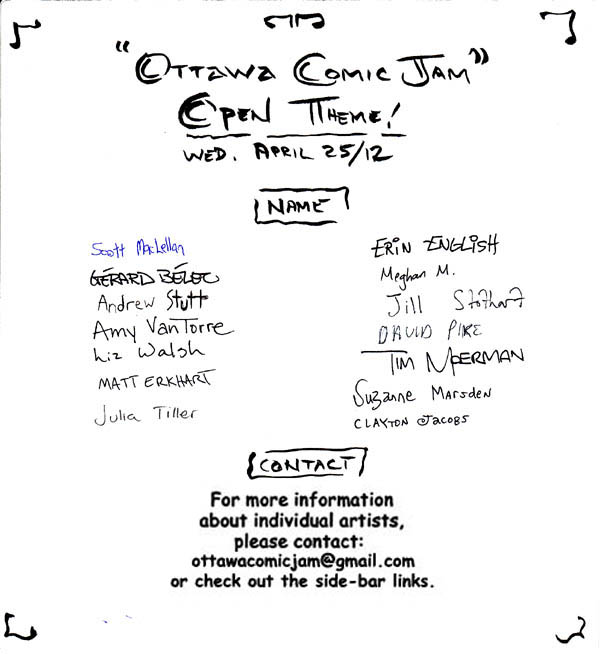 "Ottawa Comic Jam"
Open Theme!
WED. APRIL 25/12
NAME
Scott MacLellan
GÉRARD BÉLEC
Andrew Stutt
Amy VanTorre
Liz Walsh
MATT ERKHART
Julia Tiller
ERIN ENGLISH
Meghan M.
Jill Stothart
DAVID PIKE
TIM MOERMAN
Suzanne Marsden
CLAYTON JACOBS
CONTACT
For more information
about individual artists,
please contact:
ottawacomicjam@gmail.com
or check out the side-bar links.